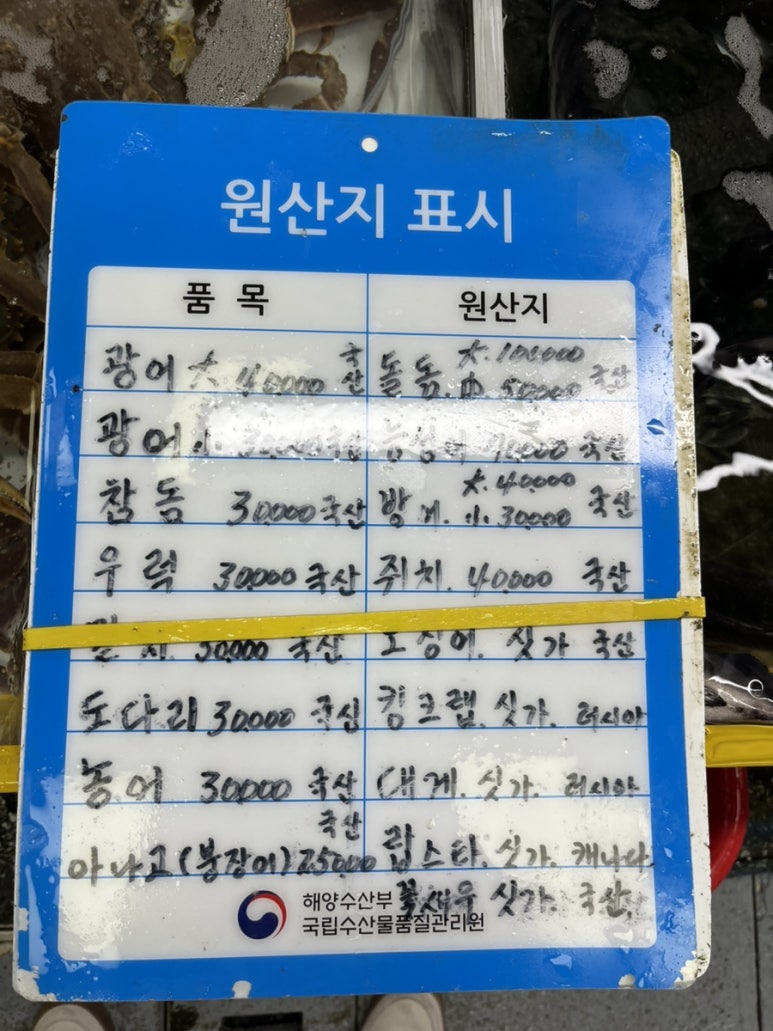 원산지 표시
품 목 원산지
광어 大. 40000 국산 돌돔. 大. 100000 中 50000 국산
광어 小. 30000 국산 농성어 70000 국산
참돔 30000 국산 방어. 大. 40000 小. 30000 국산
우럭 30000 국산 쥐치. 40000 국산
30000 국산 오징어. 싯가 국산
도다리 30000 국산 킹크랩. 싯가. 러시아
농어 30000 국산 대게. 싯가. 러시아
아나고(붕장어) 25000 국산 랍스타. 싯가. 캐나다
꽃새우 싯가. 국산
해양수산부
국립수산물품질관리원